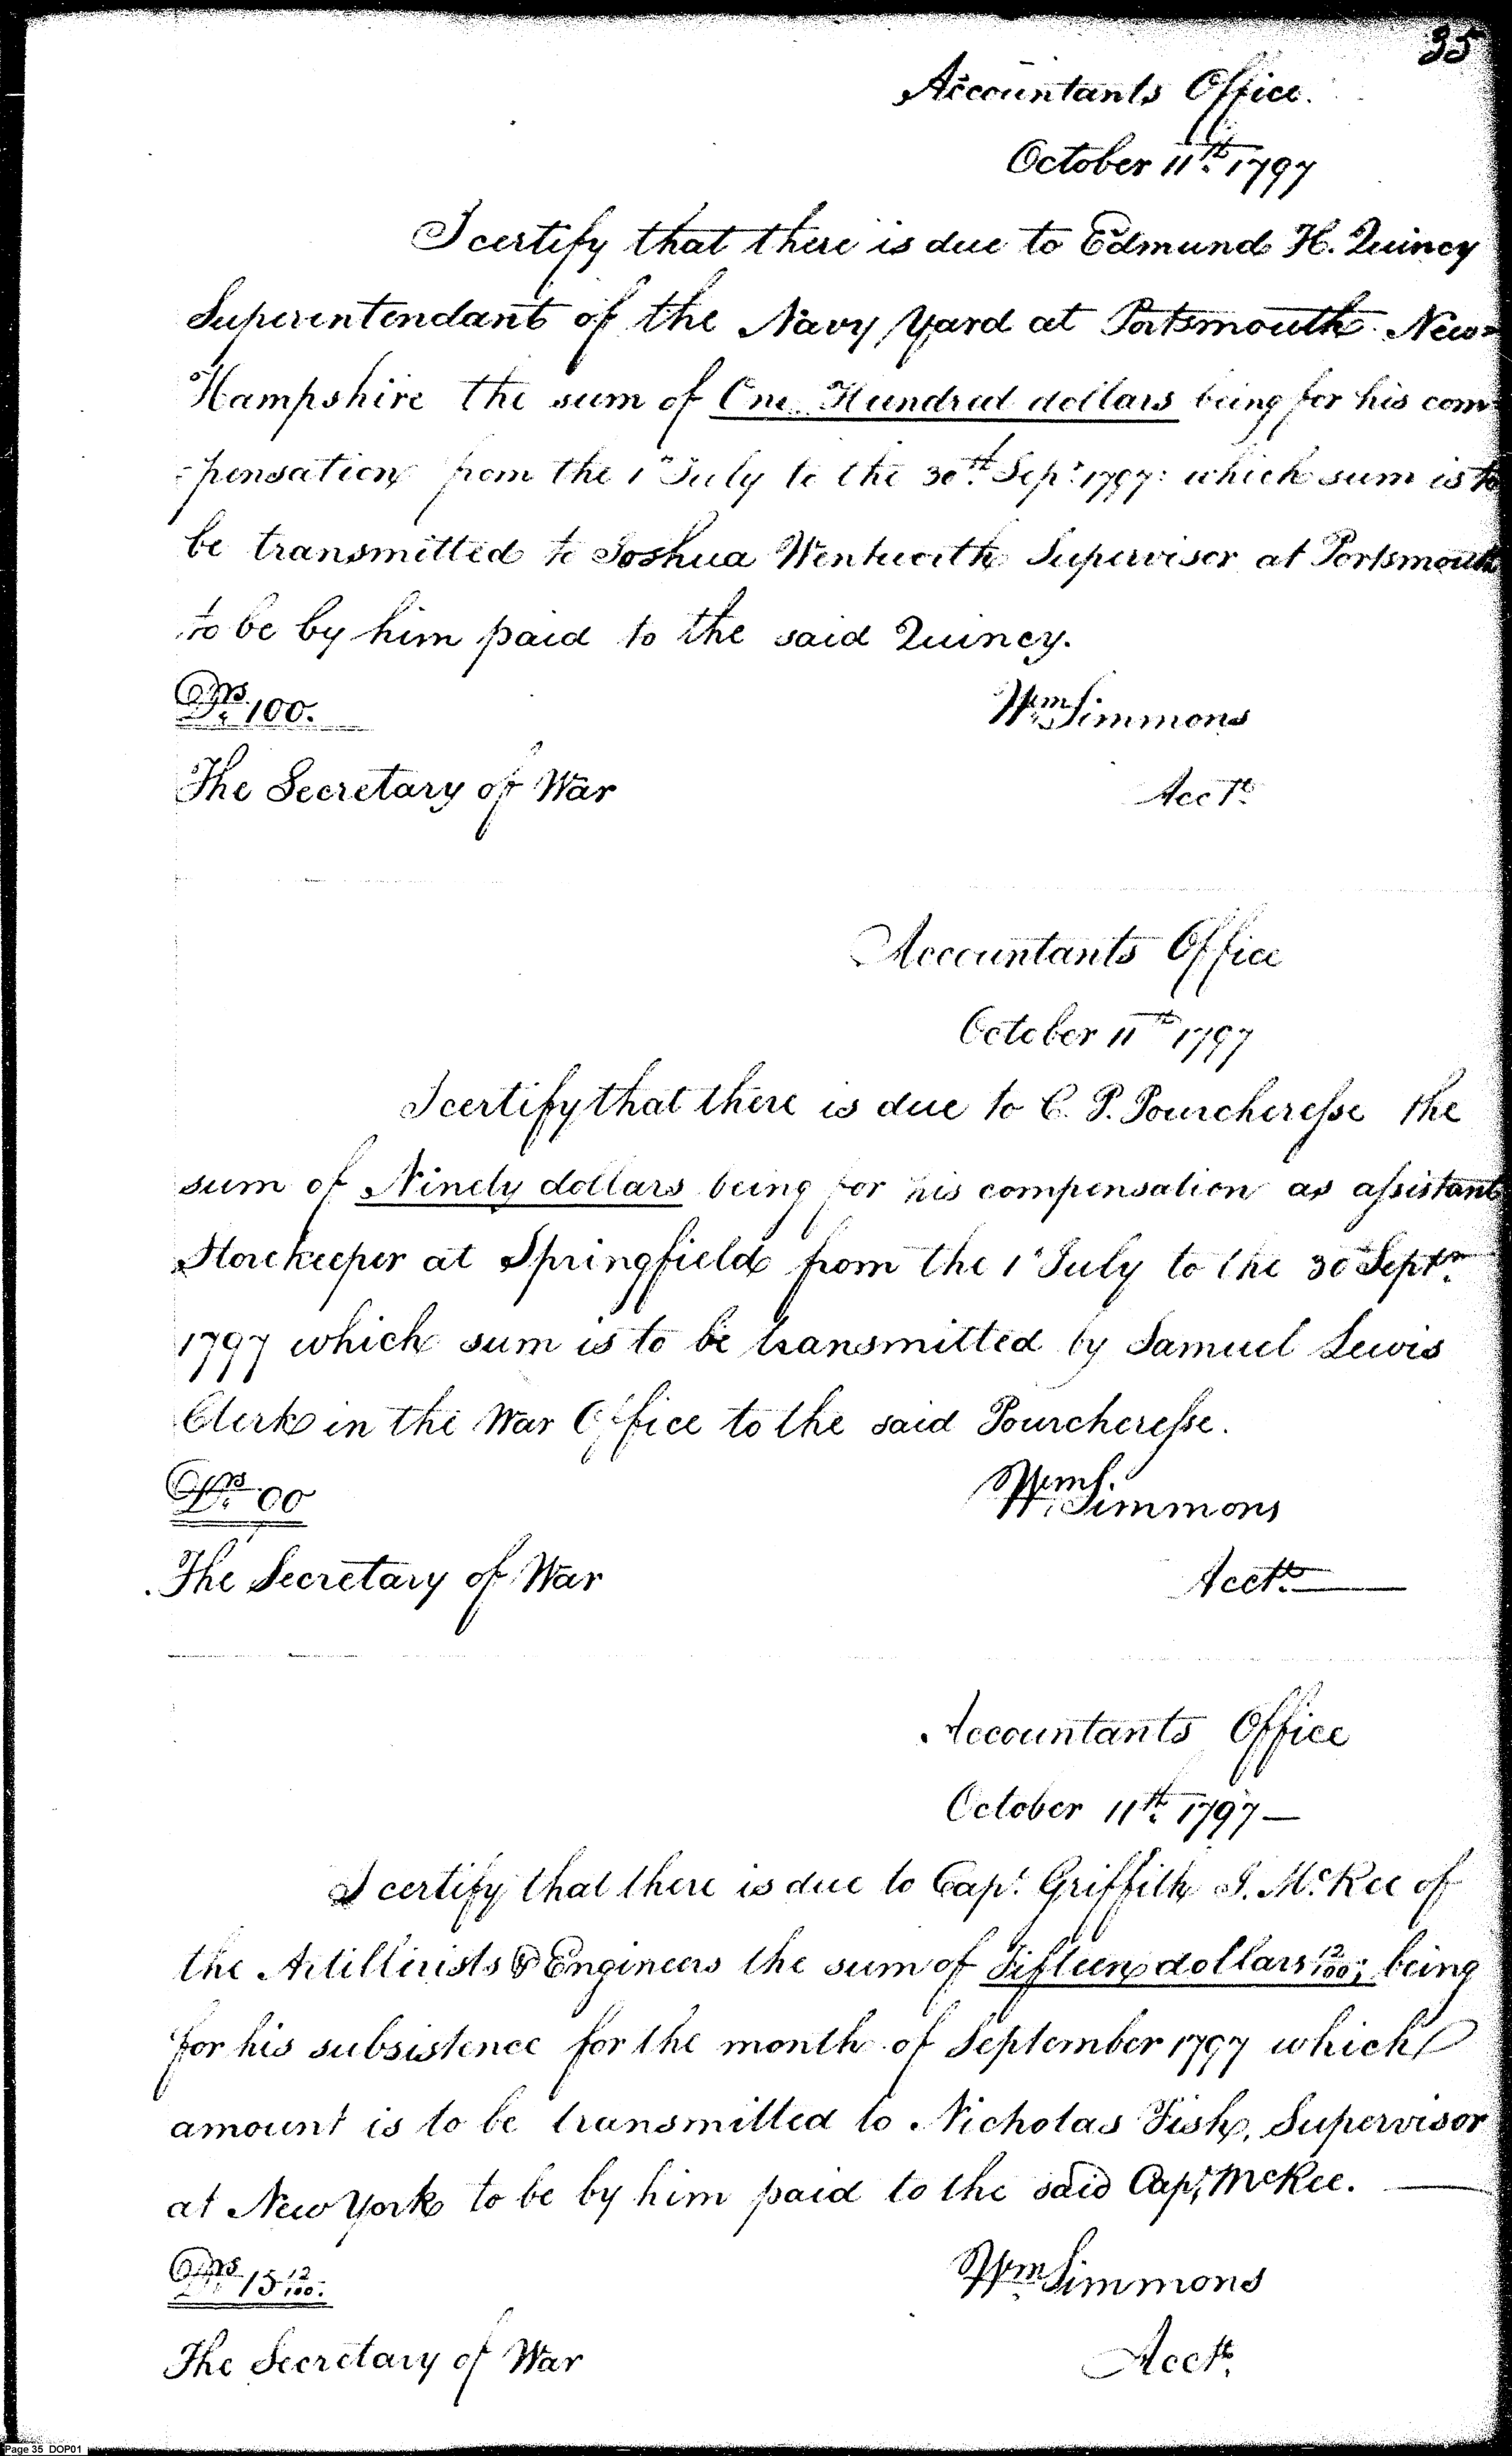 35
Accountants Office.
October 11th. 1797
I certify that there is due to Edmund H. Quincy
Superintendant of the Navy Yard at Portsmouth New=
Hampshire the sum of One Hundred dollars being for his com
-pensation from the 1st July to the 30th. Sept. 1797: which sum is to
be transmitted to Joshua Wentworth Supervisor at Portsmouth
to be by him paid to the said Quincy.
Drs. 100.
Wm. Simmons
The Secretary of War
Acct.
Accountants Office
October 11th 1797
I certify that there is due to C. P. Pourcheresse the
sum of Ninety dollars being for his compensation as assistant
Storekeeper at Springfield from the 1st July to the 30 Septr.
1797 which sum is to be transmitted by Samuel Lewis
Clerk in the War Office to the said Pourcheresse.
Drs. 90
Wm. Simmons
The Secretary of War
Acctt.
Accountants Office
October 11th. 1797—
I certify that there is due to Capt. Griffith J. McKee of
the Artillirists & Engineers the sum of Fifteen dollars 12/100; being
for his subsistence for the month of September 1797 which
amount is to be transmitted to Nicholas Fish, Supervisor
at New York to be by him paid to the said Capt. McKee. —
Drs. 15 12/100.
Wm. Simmons
The Secretary of War
Acctt.
Page 35 DOP01